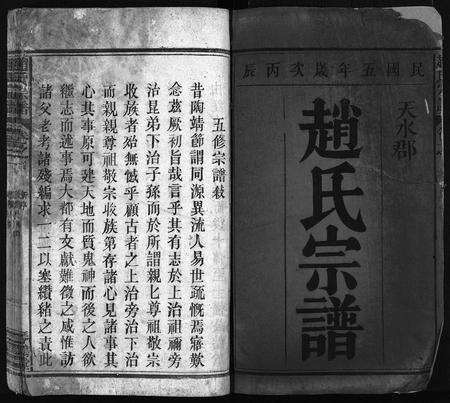 民國五年歲次丙辰
天水郡
趙氏宗譜
五修宗譜敘
昔陶靖節謂同源異流人易世疏慨焉寤歎
念茲厥初旨哉言乎其有志於上治祖禰旁
治昆弟下治子孫而於所謂親七尊祖敬宗
收族者殆無憾乎顧古者之上治旁治下治
而親親尊祖敬宗收族第存諸心見諸事其
心其事原可建天地而質鬼神而後之人欲
繼志而述事焉大都有文獻難徵之感惟訪
諸父老考諸殘編求一二以塞纘緒之責此